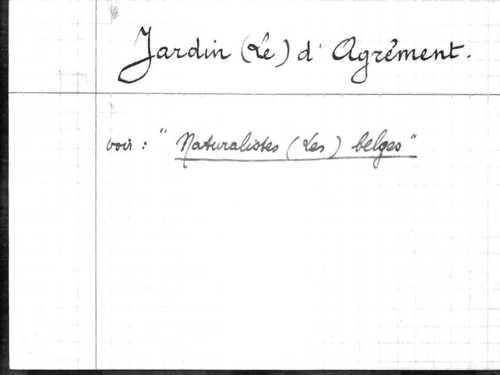 Jardin (Le) d'Agrément.
voir : "Naturalistes (Les) belges"